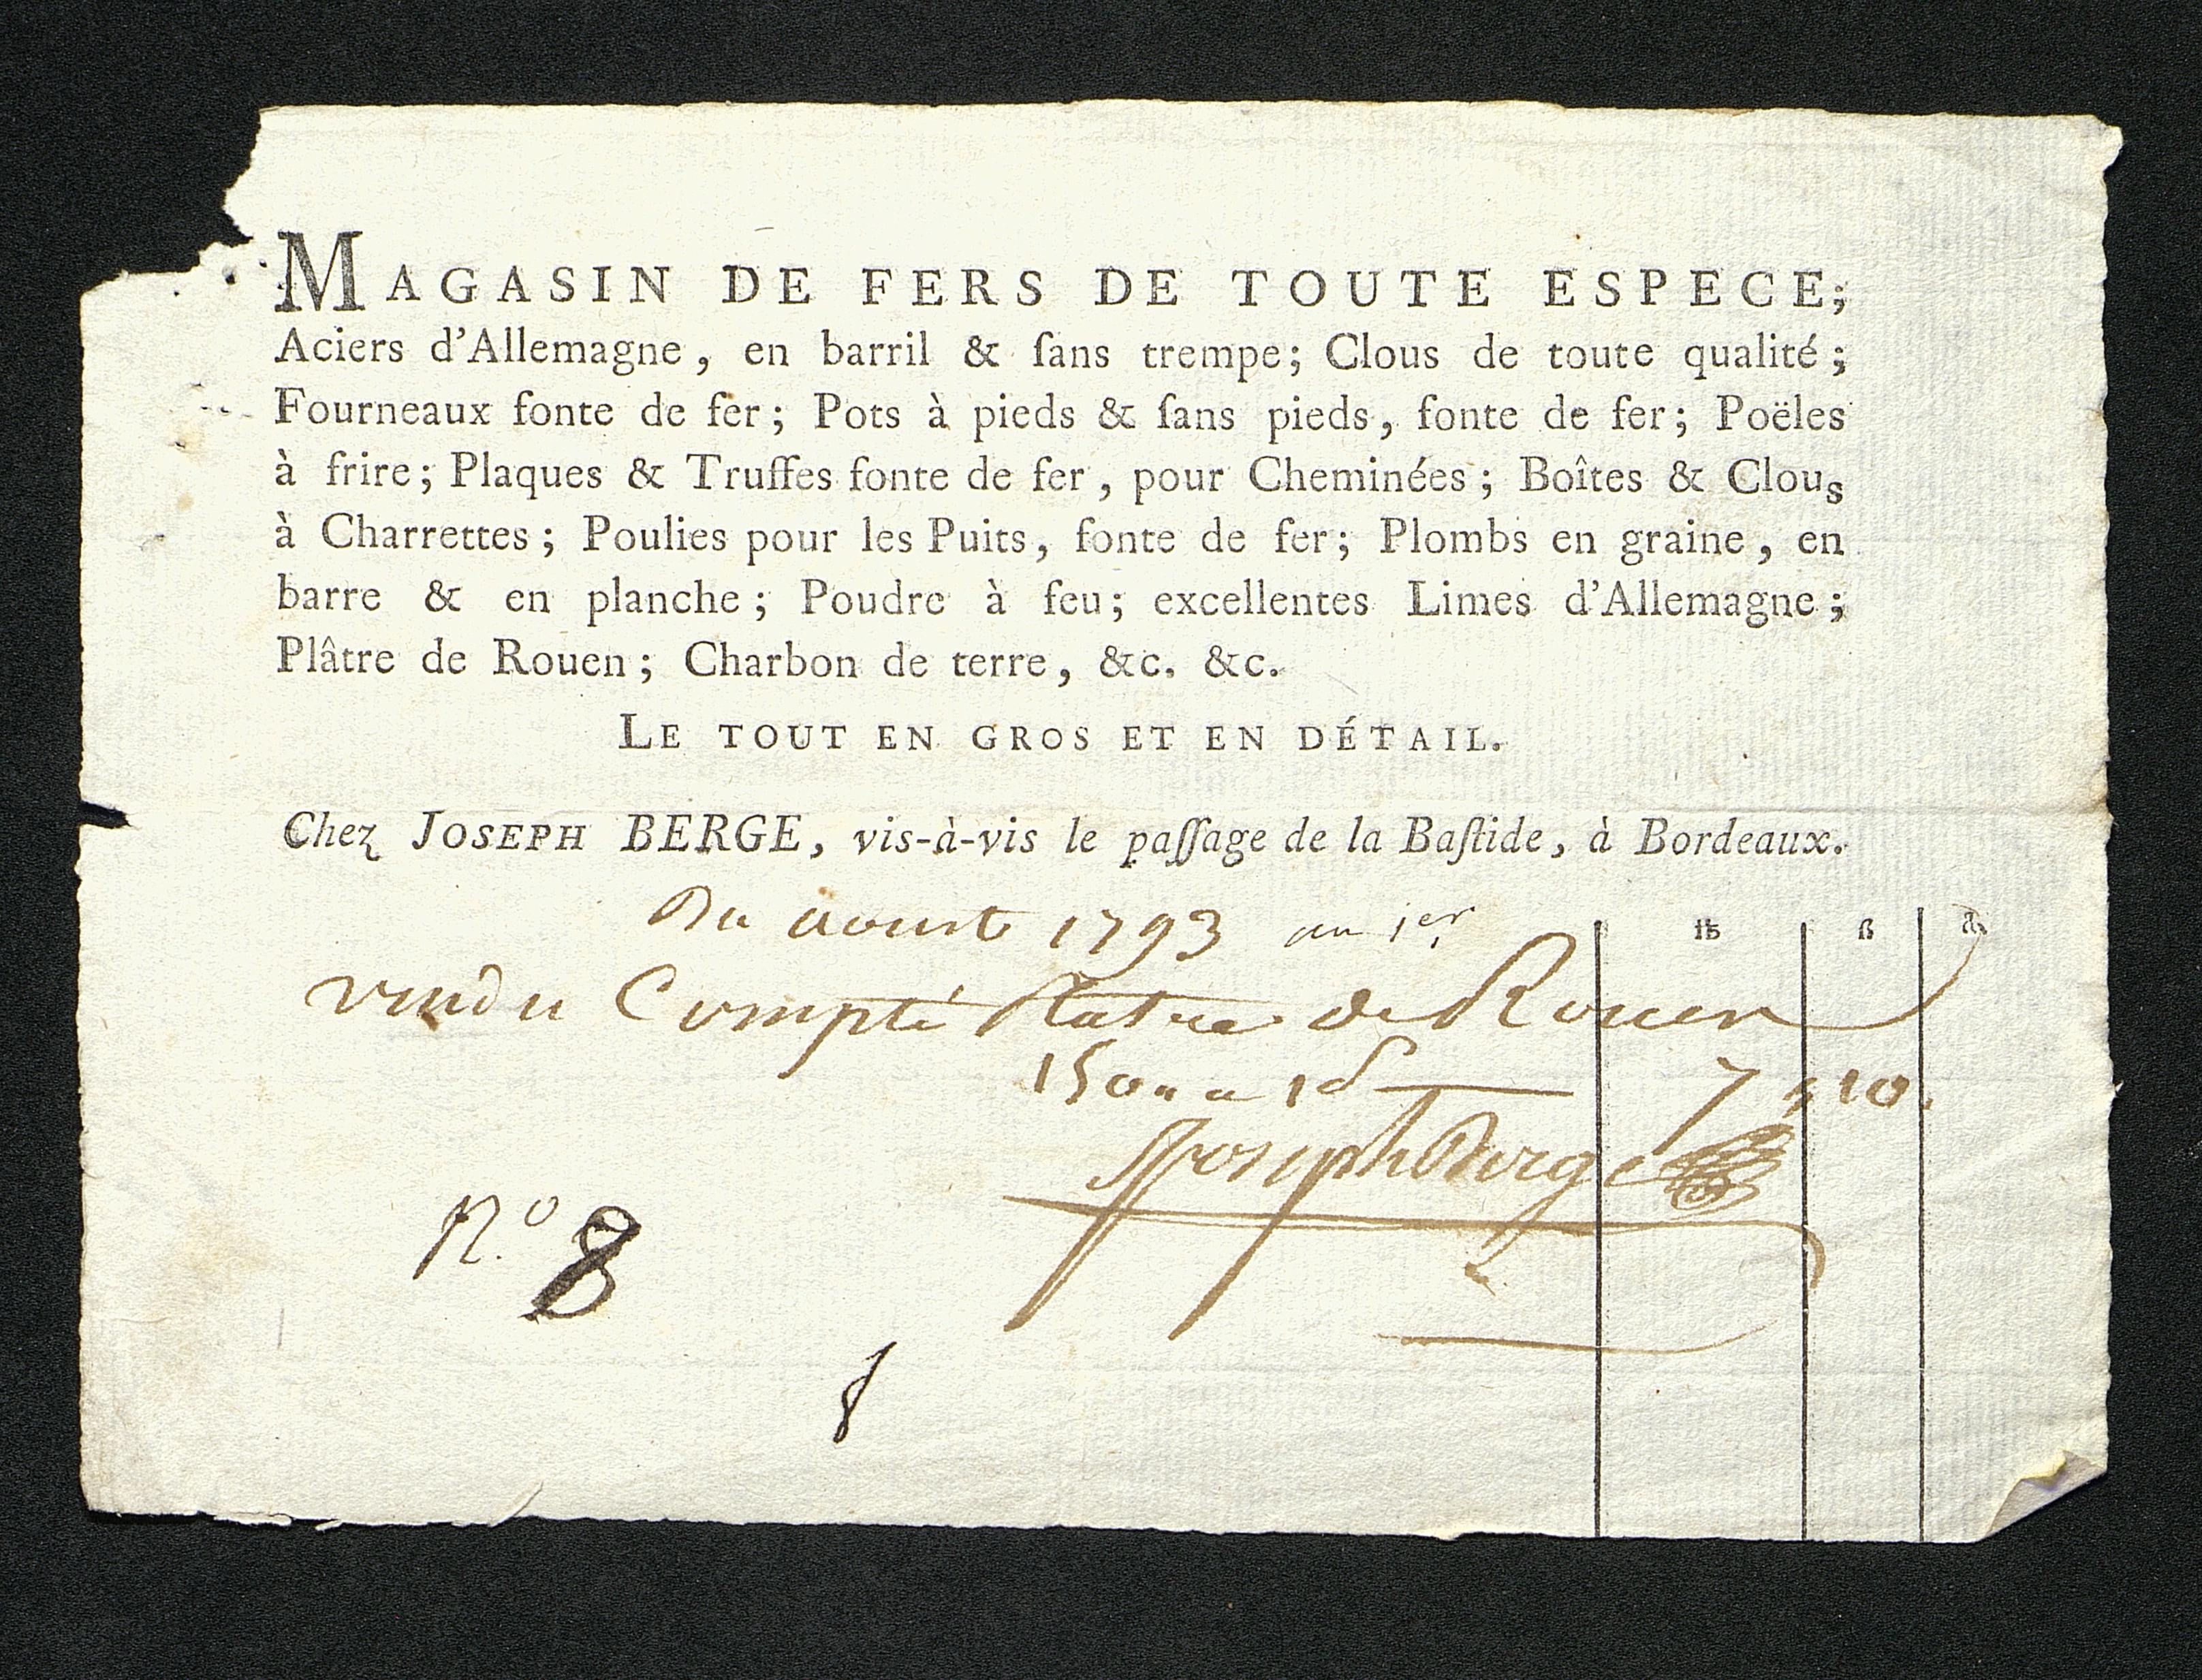 MAGASIN DE FERS DE TOUTE ESPECE;
Aciers d'Allemagne, en barril & ſans trempe; Clous de toute qualité;
Fourneaux fonte de fer; Pots à pieds & ſans pieds, fonte de fer; Poëles
à frire; Plaques & Truffes fonte de fer, pour Cheminées; Boîtes & Clous
à Charrettes; Poulies pour les Puits, fonte de fer; Plombs en graine, en
barre & en planche; Poudre à feu; excellentes Limes d'Allemagne;
Plâtre de Rouen; Charbon de terre, &c. &c.
LE TOUT EN GROS ET EN DÉTAIL.
Chez JOSEPH BERGE, vis-à-vis le paſſage de la Baſtide, à Bordeaux.
Du aoust 1793 an 1er
vendu Compté Platre de Rouen
150 a 1s 7 10
Joseph Berge
N.o 8